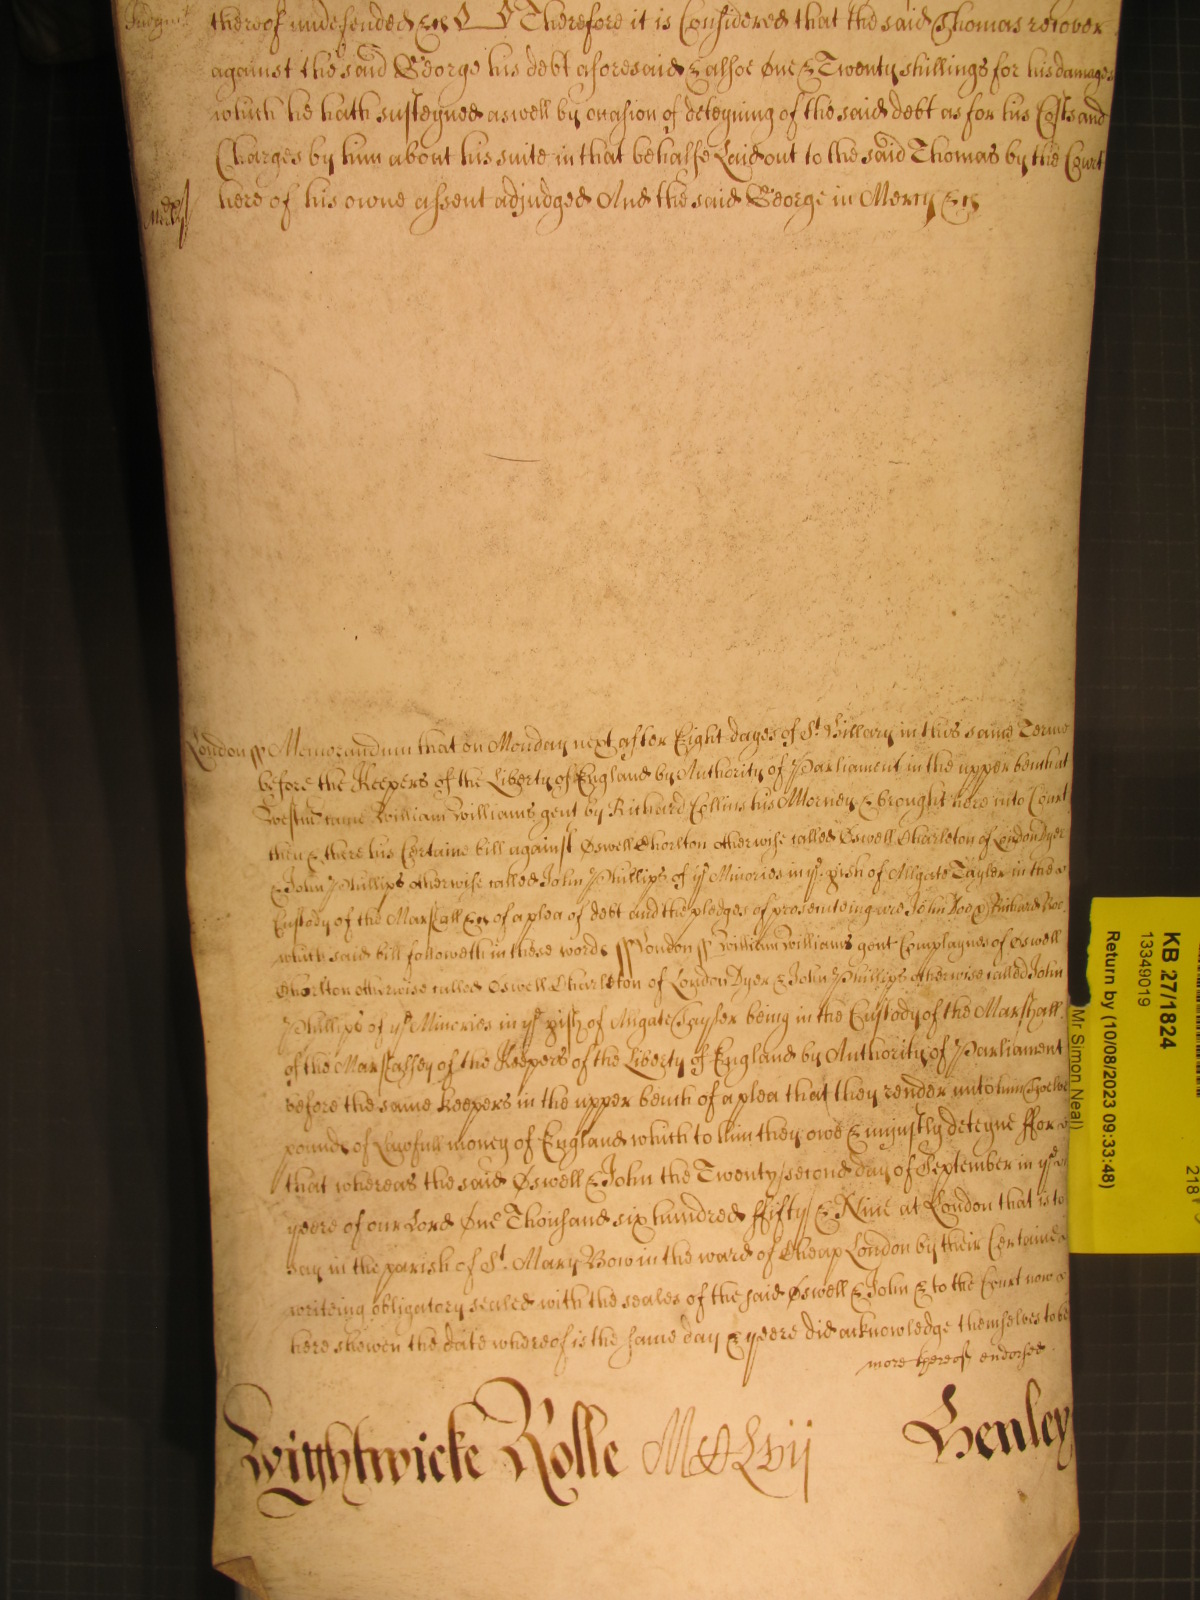 Judgmt thereof undefended &c Therefore it is Considered that the said Thomas recover
against the said George his debt aforesaid & alsoe One & Twenty shillings for his damages
which he hath susteyned aswell by occasion of deteyning of the said debt as for his Costs and
Charges by him about his suite in that behalfe Laid out to the said Thomas by the Court
mercy here of his owne assent adjudged And the said George in Mercy &c
London ss Memorandum that on Monday next after Eight dayes of St. Hillary in this same Terme
before the Keepers of the Liberty of England by Authority of Parliament in the upper bench at
Westm came William Williams gent by Richard Collins his Attorney & brought here into Court
then & there his Certaine bill against Oswell Chorlton otherwise called Oswell Charleton of London Dyer
& John Phillips otherwise called John Phillips of ye Minories in ye pish of Allgate Tayler in the
Custody of the Marshall &c of a plea of debt and the pledges of prosecuteing are John Doe & Richard Roe
which said bill followeth in these words ss London ss William Williams gent Complaynes of Oswell
Chorlton otherwise called Oswell Charleton of London Dyer & John Phillips otherwise called John
Phillips of ye Minories in ye pish of Allgate Tayler being in the Custody of the Marshall
of the Marshallsey of the Keepers of the Liberty of England by Authority of Parliament
before the same Keepers in the upper bench of a plea that they render unto him Twelve
pounds of Lawfull money of England which to him they owe & injustly deteyne ffor
that whereas the said Oswell & John the Twenty second day of September in ye
yeere of our Lord One Thousand six hundred ffifty & Nine at London that is to
say in the parish of St. Mary Bow in the ward of Cheap London by their Certaine
writeing obligatory sealed with the seales of the said Oswell & John & to the Court now
here shewen the date whereof is the same day & yeere did acknowledge themselves to be
more hereof endorsed
Wightwicke Rolle MCLvij Henley
KB 27/1824
13349019
Return by (10/08/2023 09:33:48)
Mr Simon Neal)